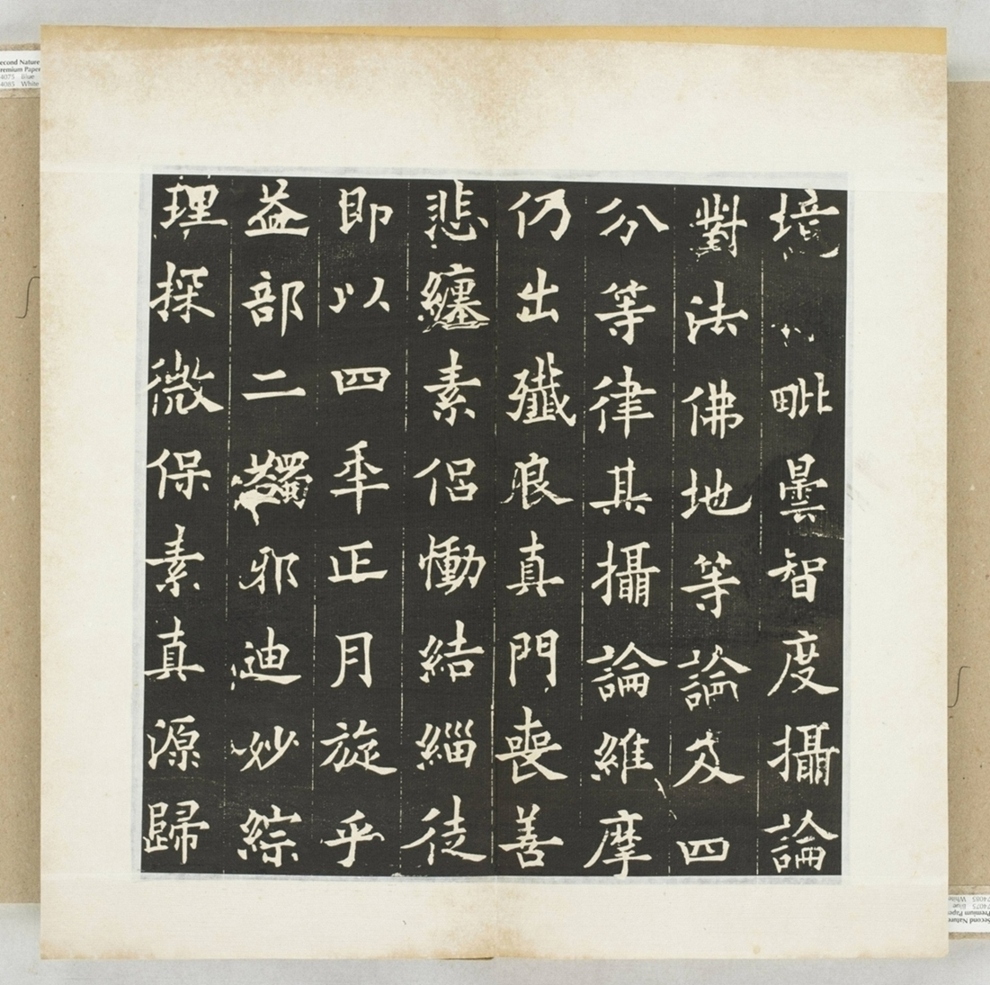 境毗曇智度攝論
對法佛地等論及四
分等律其攝論維摩
仍出殲良真門喪善
悲纏素侶慟結緇徒
即以四年正月旋乎
益部二蠲邪迪妙綜
理探微保素真源歸
Second Nature
Premium Paper
74075 Blue
74085 White
Second Nature
Premium Paper
74075 Blue
74085 White